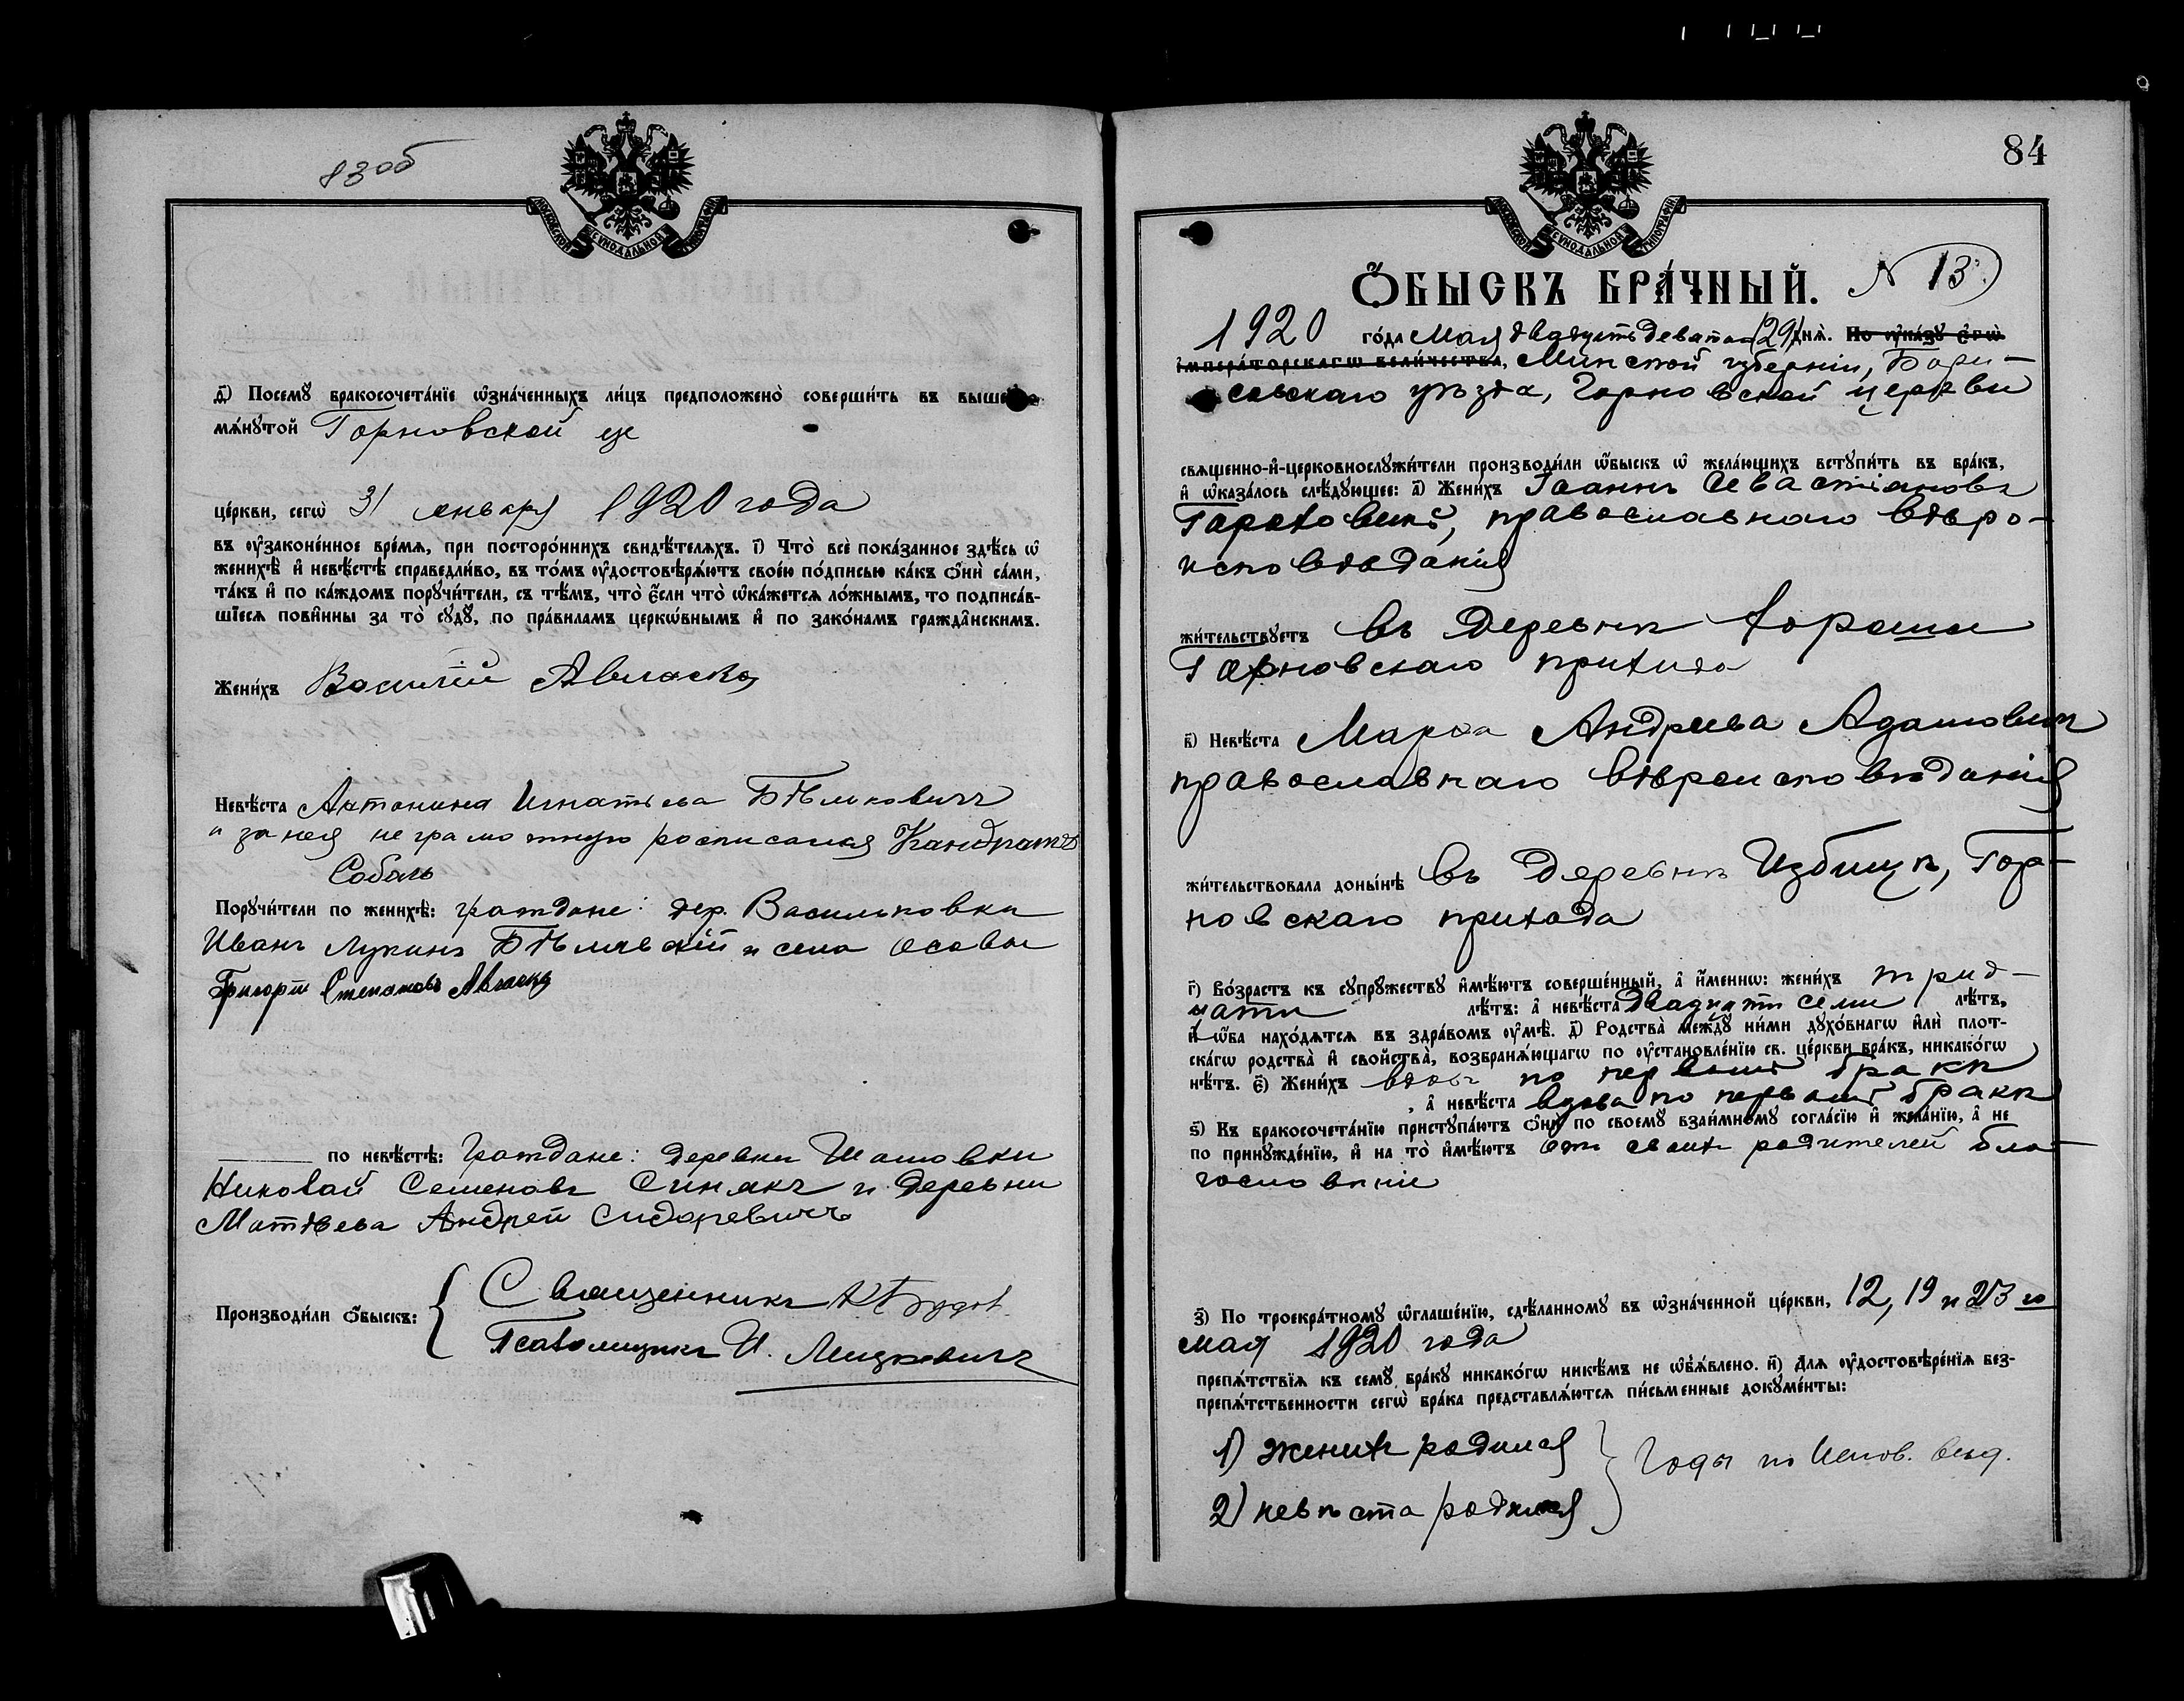 83об
МОСКОВСКОЙ СУНОДАЛЬНОЙ ТИПОГРАФІИ
д҃) Посемꙋ бракосочета́нїе ѡ҆зна́ченныхъ ли́цъ предположено̀ соверши́ть въ выше
мѧ́нꙋтой Горновской це
це́ркви, сегѡ̀ 31 января 1920 года
въ ᲂу҆зако́не́нное вре́мѧ, при посторо́ннихъ свидѣ́телѧхъ. і҃) Что̀ всѐ пока́занное здѣ́сь ѡ҆
женихѣ̀ и҆ невѣ́стѣ справедли́во, въ то́мъ ᲂу҆достовѣрѧ́ютъ свое́ю по́дписью ка́къ ѻ҆нѝ са́ми,
та́къ и҆ по ка́ждомъ порꙋчи́тели, съ тѣ́мъ, что̀ є҆́сли что̀ ѡ҆ка́жетсѧ ло́жнымъ, то подписа́в-
шїесѧ пови́нны за то̀ сꙋдꙋ̀, по пра́виламъ церко́внымъ и҆ по зако́намъ гражда́нскимъ.
Жени́хъ Василій Авласко
Невѣ́ста Антонина Игнатьева Бѣльковичъ
и за нея неграмотную росписался Кандратъ
Соболь
Порꙋчи́тели по женихѣ̀: граждане: дер. Васильковки
Иванъ Лукинъ Бѣлявскій и села Осовы
Григорій Степановъ Авласко
по невѣ́стѣ: Граждане: деревни Шамовки
Николай Семеновъ Синякъ и деревни
Матвѣева Андрей Сидоревичъ
Производи́ли ѻ҆́быскъ: Священникъ
Псаломщикъ И. Мицкевичъ
84
МОСКОВСКОЙ СУНОДАЛЬНОЙ ТИПОГРАФІИ
Ѻ҆́БЫСКЪ БРА́ЧНЫЙ. N 13.
1920 го́да мая двадцать девятаго (29) днѧ̀. По ᲂу҆ка́зꙋ є҆гѡ̀
и҆мпера́торскагѡ вели́чества, Минской губерніи, Бори-
совскаго уѣзда, Горновской церкви
свѧще́нно-и҆-церковнослꙋжи́тели производи́ли ѡ҆́быскъ ѡ҆ жела́ющихъ встꙋпи́ть въ бра́къ,
и҆ ѡ҆каза́лось слѣ́дꙋющее: а҃) Жени́хъ Іоаннъ Севастіановъ
Гороховикъ, православнаго вѣро-
исповѣданія
жи́тельствꙋетъ въ деревнѣ Хороши
Горновскаго прихода
в҃) Невѣ́ста Марѳа Андреева Адамовичъ
православнаго вѣроисповѣданія
жи́тельствовала доны́нѣ въ деревнѣ Избищѣ, Гор-
новскаго прихода
г҃) Во́зрастъ къ сꙋпрꙋ́жествꙋ и҆мѣ́ютъ соверше́нный, а҆ и҆́меннѡ: жени́хъ трид-
цати лѣ́тъ: а҆ невѣ́ста двадцати семи лѣ́тъ,
и҆ ѡ҆́ба нахо́дѧтсѧ въ здра́вомъ ᲂу҆мѣ̀. д҃) Родства̀ междꙋ̀ ни́ми дꙋхо́внагѡ и҆лѝ плот-
ска́гѡ родства̀ и҆ свойства̀, возбранѧ́ющагѡ по ᲂу҆становле́нїю св. це́ркви бра́къ, никако́гѡ
нѣ́тъ. є҃) Жени́хъ вдовъ по первомъ бракѣ
, а҆ невѣ́ста вдова по первомъ бракѣ
ѕ҃) Къ бракосочета́нїю пристꙋпа́ютъ ѻ҆нѝ по своемꙋ̀ взаи́мномꙋ согла́сїю и҆ жела́нїю, а҆ не
по принꙋжде́нїю, и҆ на то̀ и҆мѣ́ютъ отъ своихъ родителей бла-
гословеніе
з҃) По троекра́тномꙋ ѡ҆глаше́нїю, сдѣ́ланномꙋ въ ѡ҆зна́ченной це́ркви, 12, 19 и 23 го
мая 1920 года
препѧ́тствїѧ къ семꙋ̀ бра́кꙋ никако́гѡ никѣ́мъ не ѡ҆б̾ѧ́влено. и҃) Длѧ ᲂу҆достовѣре́нїѧ без-
препѧ́тственности сегѡ̀ бра́ка представлѧ́ютсѧ пи́сьменные докꙋме́нты:
1) женихъ родился
Годы по Испов. вѣд.
2) невѣста родилась